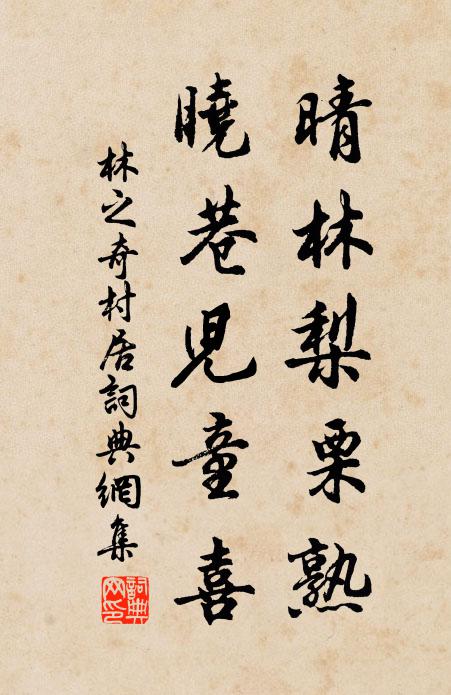 晴林梨栗熟
曉巷児童喜
林之奇村居詞典網集
詞典
网印